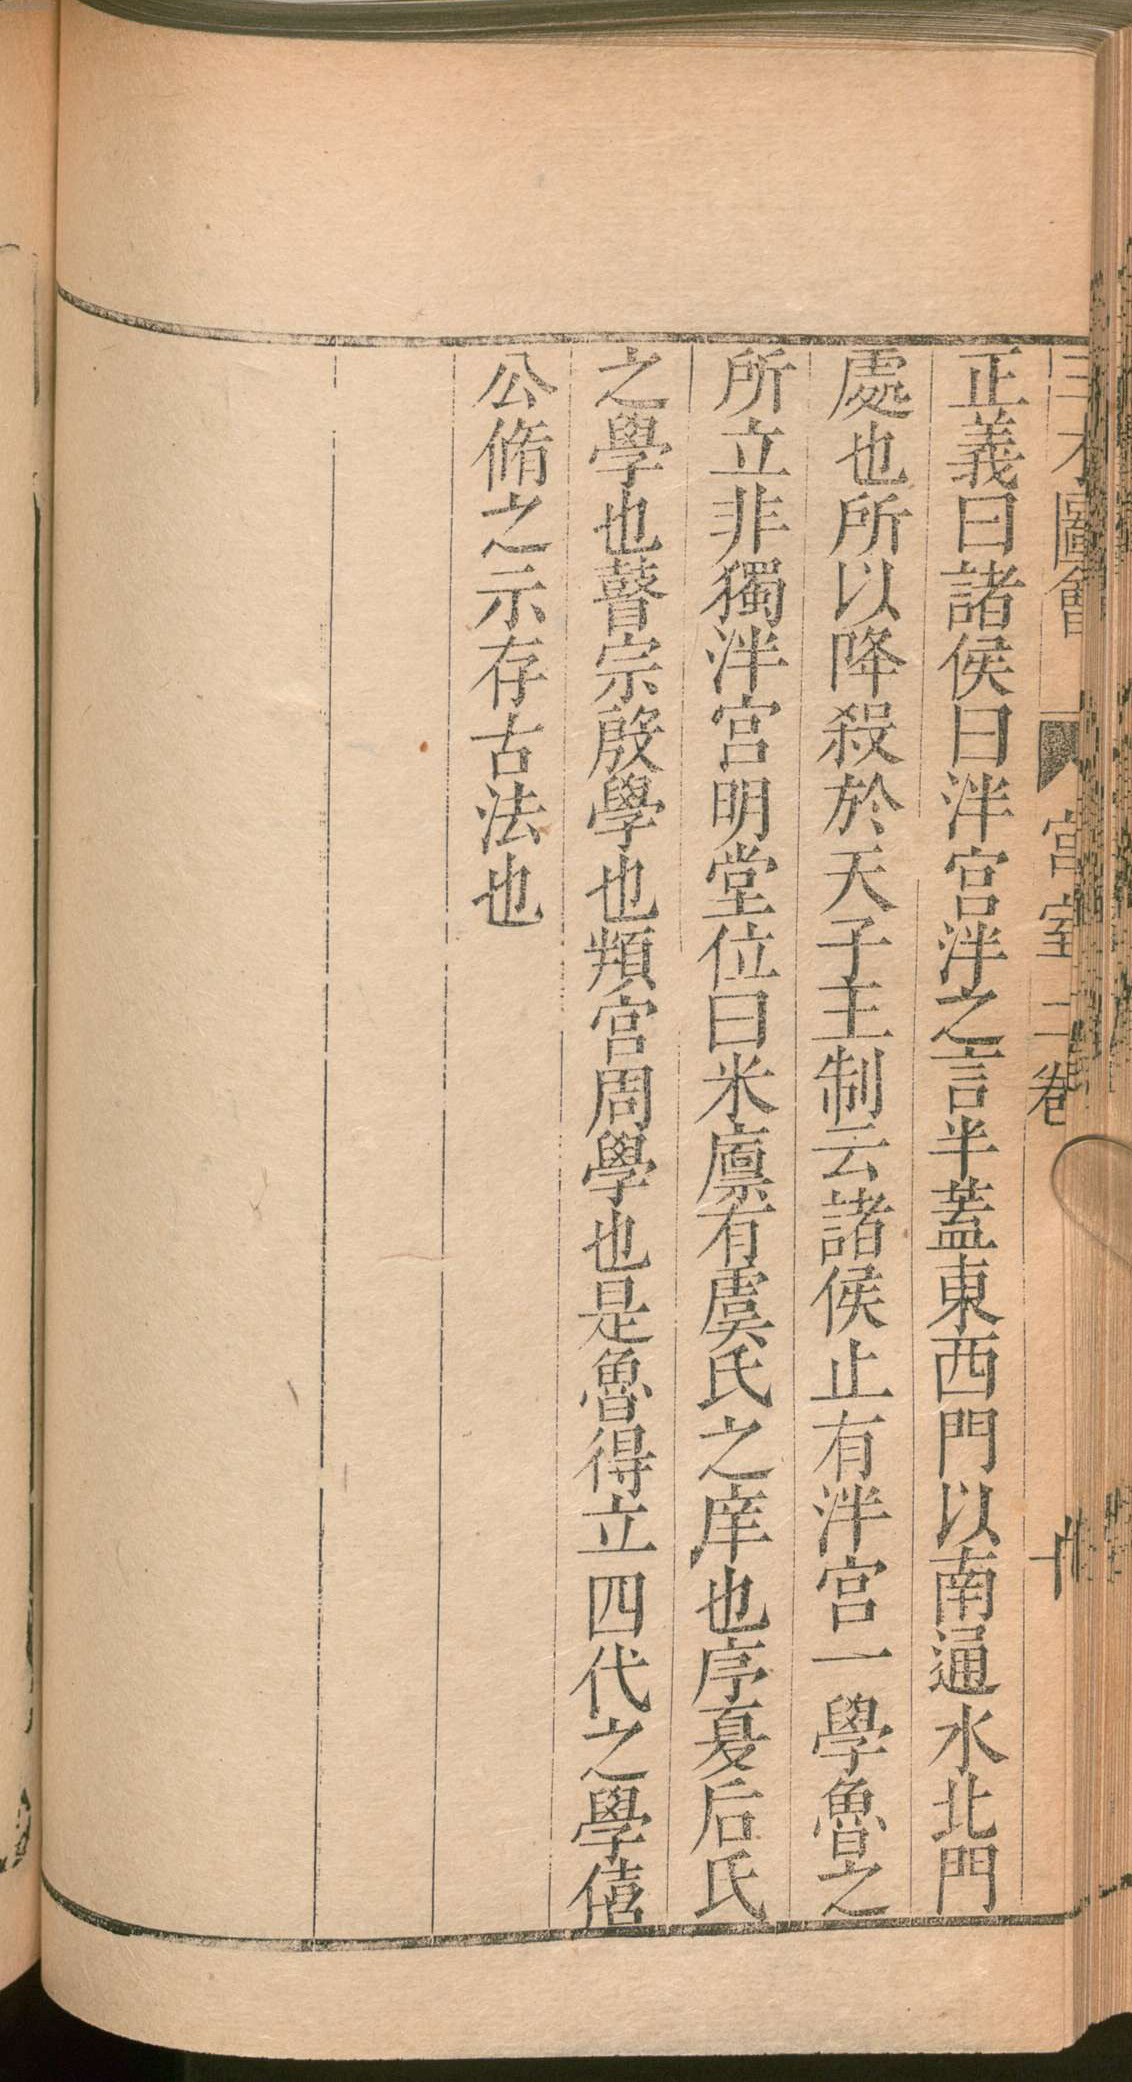 三才圖會
宮室二卷
十
正義曰諸侯曰泮宮泮之言半蓋東西門以南通水北門
處也所以降殺於天子主制云諸侯止有泮宮一學魯之
所立非獨泮宮明堂位曰米廩有虞氏之庠也序夏后氏
之學也瞽宗殷學也頖宮周學也是魯得立四代之學僖
公脩之示存古法也